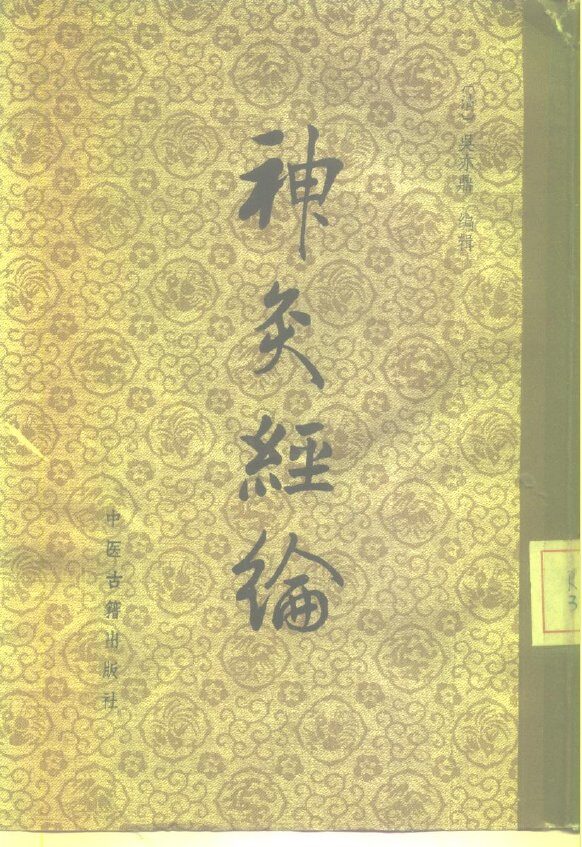 〔清〕吳亦鼎 编辑
神灸經綸
中医古籍出版社